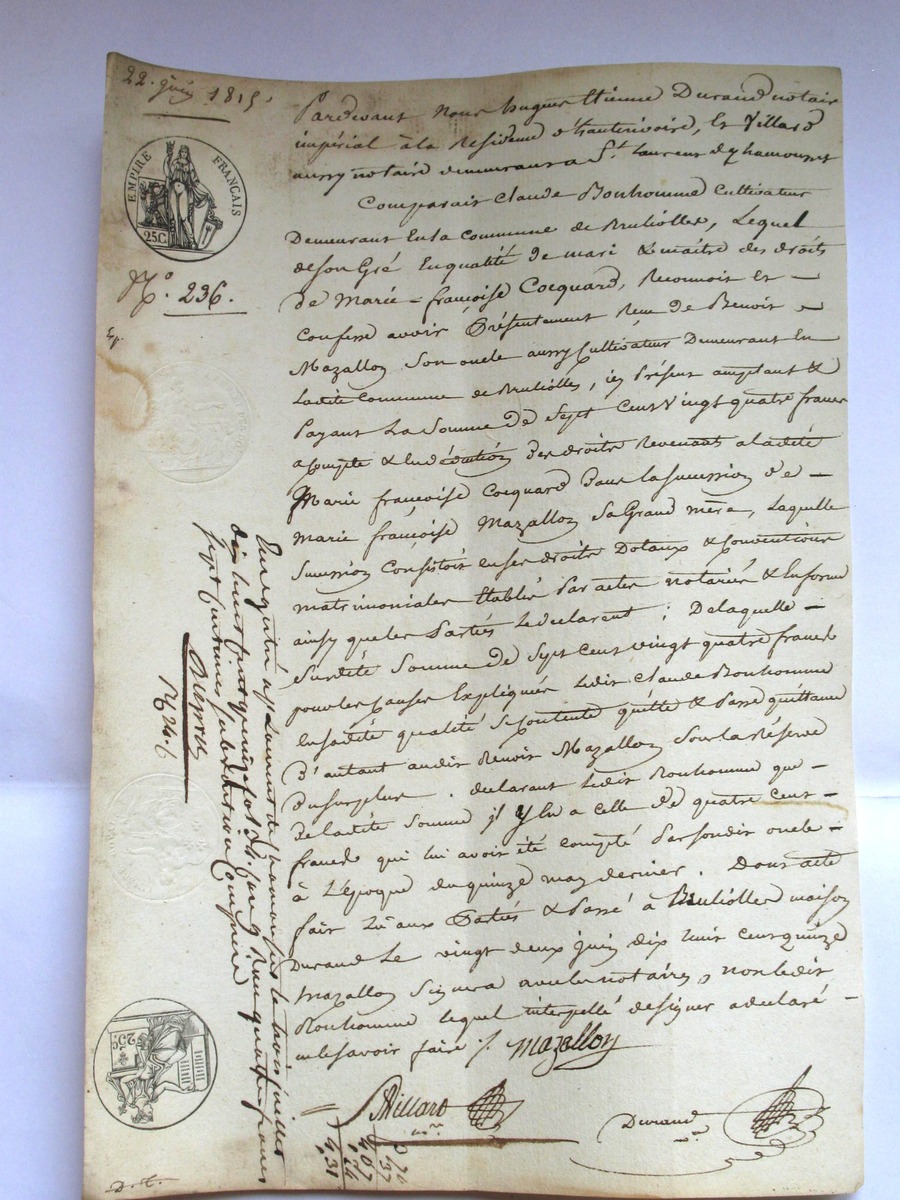 22. juin 1815.
EMPIRE FRANÇAIS
25C.
N.º 236.
Pardevant Nous hugues Etienne Durand notaire
impérial à la Residence d'hauterivoire, Et Villard
aussy notaire demeurant a S.t Laurent de Chamousset
Comparait Claude Bonhomme Cultivateur
Demeurant En la Commune de Brullioles, Lequel
de son Gré En qualité de mari & maître des droits
de Marie-françoise Cocquard, Reconnoit Et -
Confesse avoir Présentement Reçu de Benoit -
Mazallon Son oncle aussy Cultivateur Demeurant En
Ladite Commune de Brullioles, icy Présent acceptant &
Payant La Somme de Sept Cent Vingt quatre francs
a Compte & En déduction des droits Revenant a ladite
Marie françoise Cocquard dans la succession de -
Marie françoise Mazallon Sa Grand mère, Laquelle
Succession Consistoit en ses droits Dotaux & Conventions
matrimoniales Etablis Par actes notariés & En forme
ainsy que les Parties le declarent ; De laquelle -
Susdite Somme de Sept Cent vingt quatre francs
pour les Causes Expliquées Ledit Claude Bonhomme
En sadite qualité Se Contente quitte & Passe quittance
d'autant audit Benoit Mazallon Sous la Réserve
du surplus . declarant Ledit Bonhomme que -
de ladite Somme il y En a celle de quatre Cent -
francs qui lui avoit été compté Par sondit oncle -
à L'époque du quinze may dernier . Dont acte
fait Lû aux Parties & Passé à Brullioles maison
Durand Le vingt deux juin dix huit Cent quinze
Mazallon Signera avec les notaires, non ledit
Bonhomme lequel interpellé de signer a declaré -
ne le savoir faire ./. Mazallon
Villard
n.re
Durand
n.re
Enregistré à S.t Laurent de Chamousset le trois juillet
dix huit cent quinze f.o 134 Reçu quatre francs
sept centimes subvention Comprise
25C.